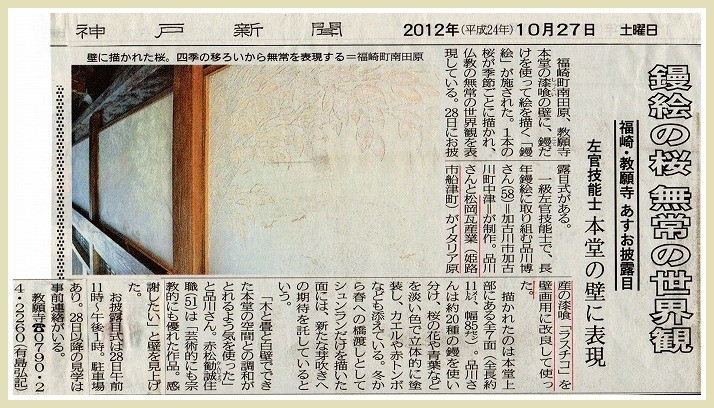 神戸新聞 2012年(平成24年)10月27日 土曜日
鏝絵の桜 無常の世界観
福崎・教願寺 あすお披露目
左官技能士 本堂の壁に表現
壁に描かれた桜。四季の移ろいから無常を表現する=福崎町南田原
福崎町南田原、教願寺
本堂の漆喰の壁に、鏝だ
けを使って絵を描く「鏝
絵」が施された。1本の
桜が季節ごとに描かれ、
仏教の無常の世界観を表
現している。28日にお披
露目式がある。
一級左官技能士で、長
年鏝絵に取り組む品川博
さん(58)=加古川市加古
川町中津=が制作。品川
さんと松岡瓦産業(姫路
市船津町)がイタリア原
産の漆喰「ラスチコ」を
壁画用に改良して使っ
た。
描かれたのは本堂上
部にある全7面(全長約
11㍍、幅85㌢)。品川さ
んは約20種の鏝を使い
分け、桜の花や青葉など
を淡い色で立体的に塗
装し、カエルや赤トンボ
なども添えている。冬か
ら春への橋渡しとして
シュンランだけを描いた
面には、新たな芽吹きへ
の期待を託していると
いう。
「木と畳と白壁ででき
た本堂の空間との調和が
とれるよう気を使った」
と品川さん。赤松勧誠住
職(51)は「芸術的にも宗
教的にも優れた作品。感
謝したい」と壁を見上げ
た。
お披露目式は28日午前
11時~午後1時。駐車場
あり。28日以降の見学は
事前連絡がいる。
教願寺☎0790・2
4・2260(有島弘記)